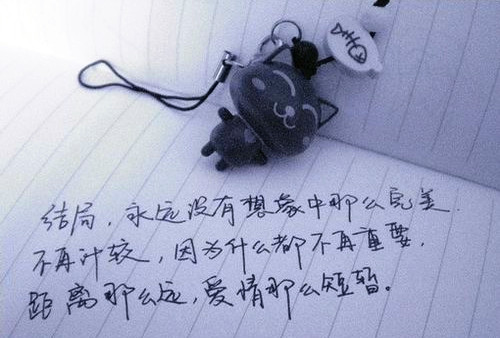 结局，永远没有想象中那么完美．
不再计较，因为什么都不再重要，
距离那么远，爱情那么短暂。